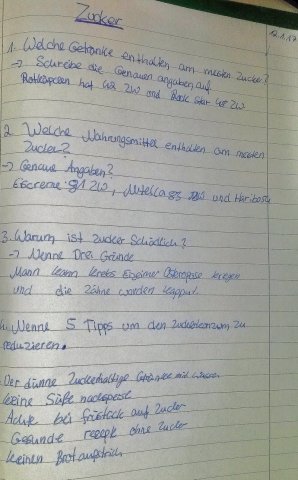 Zucker
12.1.17
1. Welche Getränke enthalten am meisten Zucker?
→ Schreibe die Genauen angaben auf
hat 42 ZW und Rock Star 48 ZW
2. Welche Nahrungsmittel enthalten am meisten
Zucker?
→ Genaue Angaben?
81 ZW, Nutella 83 ZW und Haribo
3. Warum ist Zucker Schädlich?
→ Nenne Drei Gründe
Mann kann krebs kriegen
und die Zähne werden kaputt.
4. Nenne 5 Tipps um den Zuckerkonsum zu
reduzieren.
Zuckerhaltige Getränke
keine Süße nachspeise
Achte bei frühstück auf Zucker
Gesunde rezept ohne Zucker
keinen Brotaufstrich